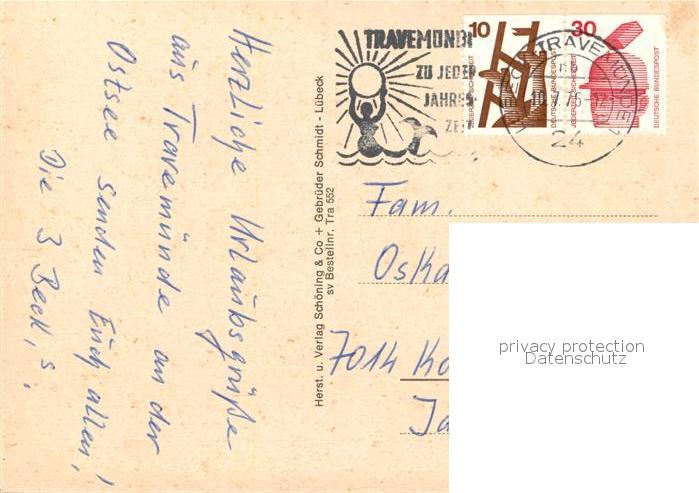 Herzliche Urlaubsgrüße
aus Travemünde an der
Ostsee senden Euch allen,
Die 3 Beck,s.!
Herst. u. Verlag Schöning & Co + Gebrüder Schmidt - Lübeck
sv Bestellnr. Tra 552
TRAVEMÜND
ZU JEDER
JAHRES
ZEI
10
DEUTSCHE BUNDESPOST
30
DEUTSCHE BUNDESPOST
TRAVEMÜNDE 1
24
Fam.
Oska
7014 Ko
Ja
privacy protection
Datenschutz